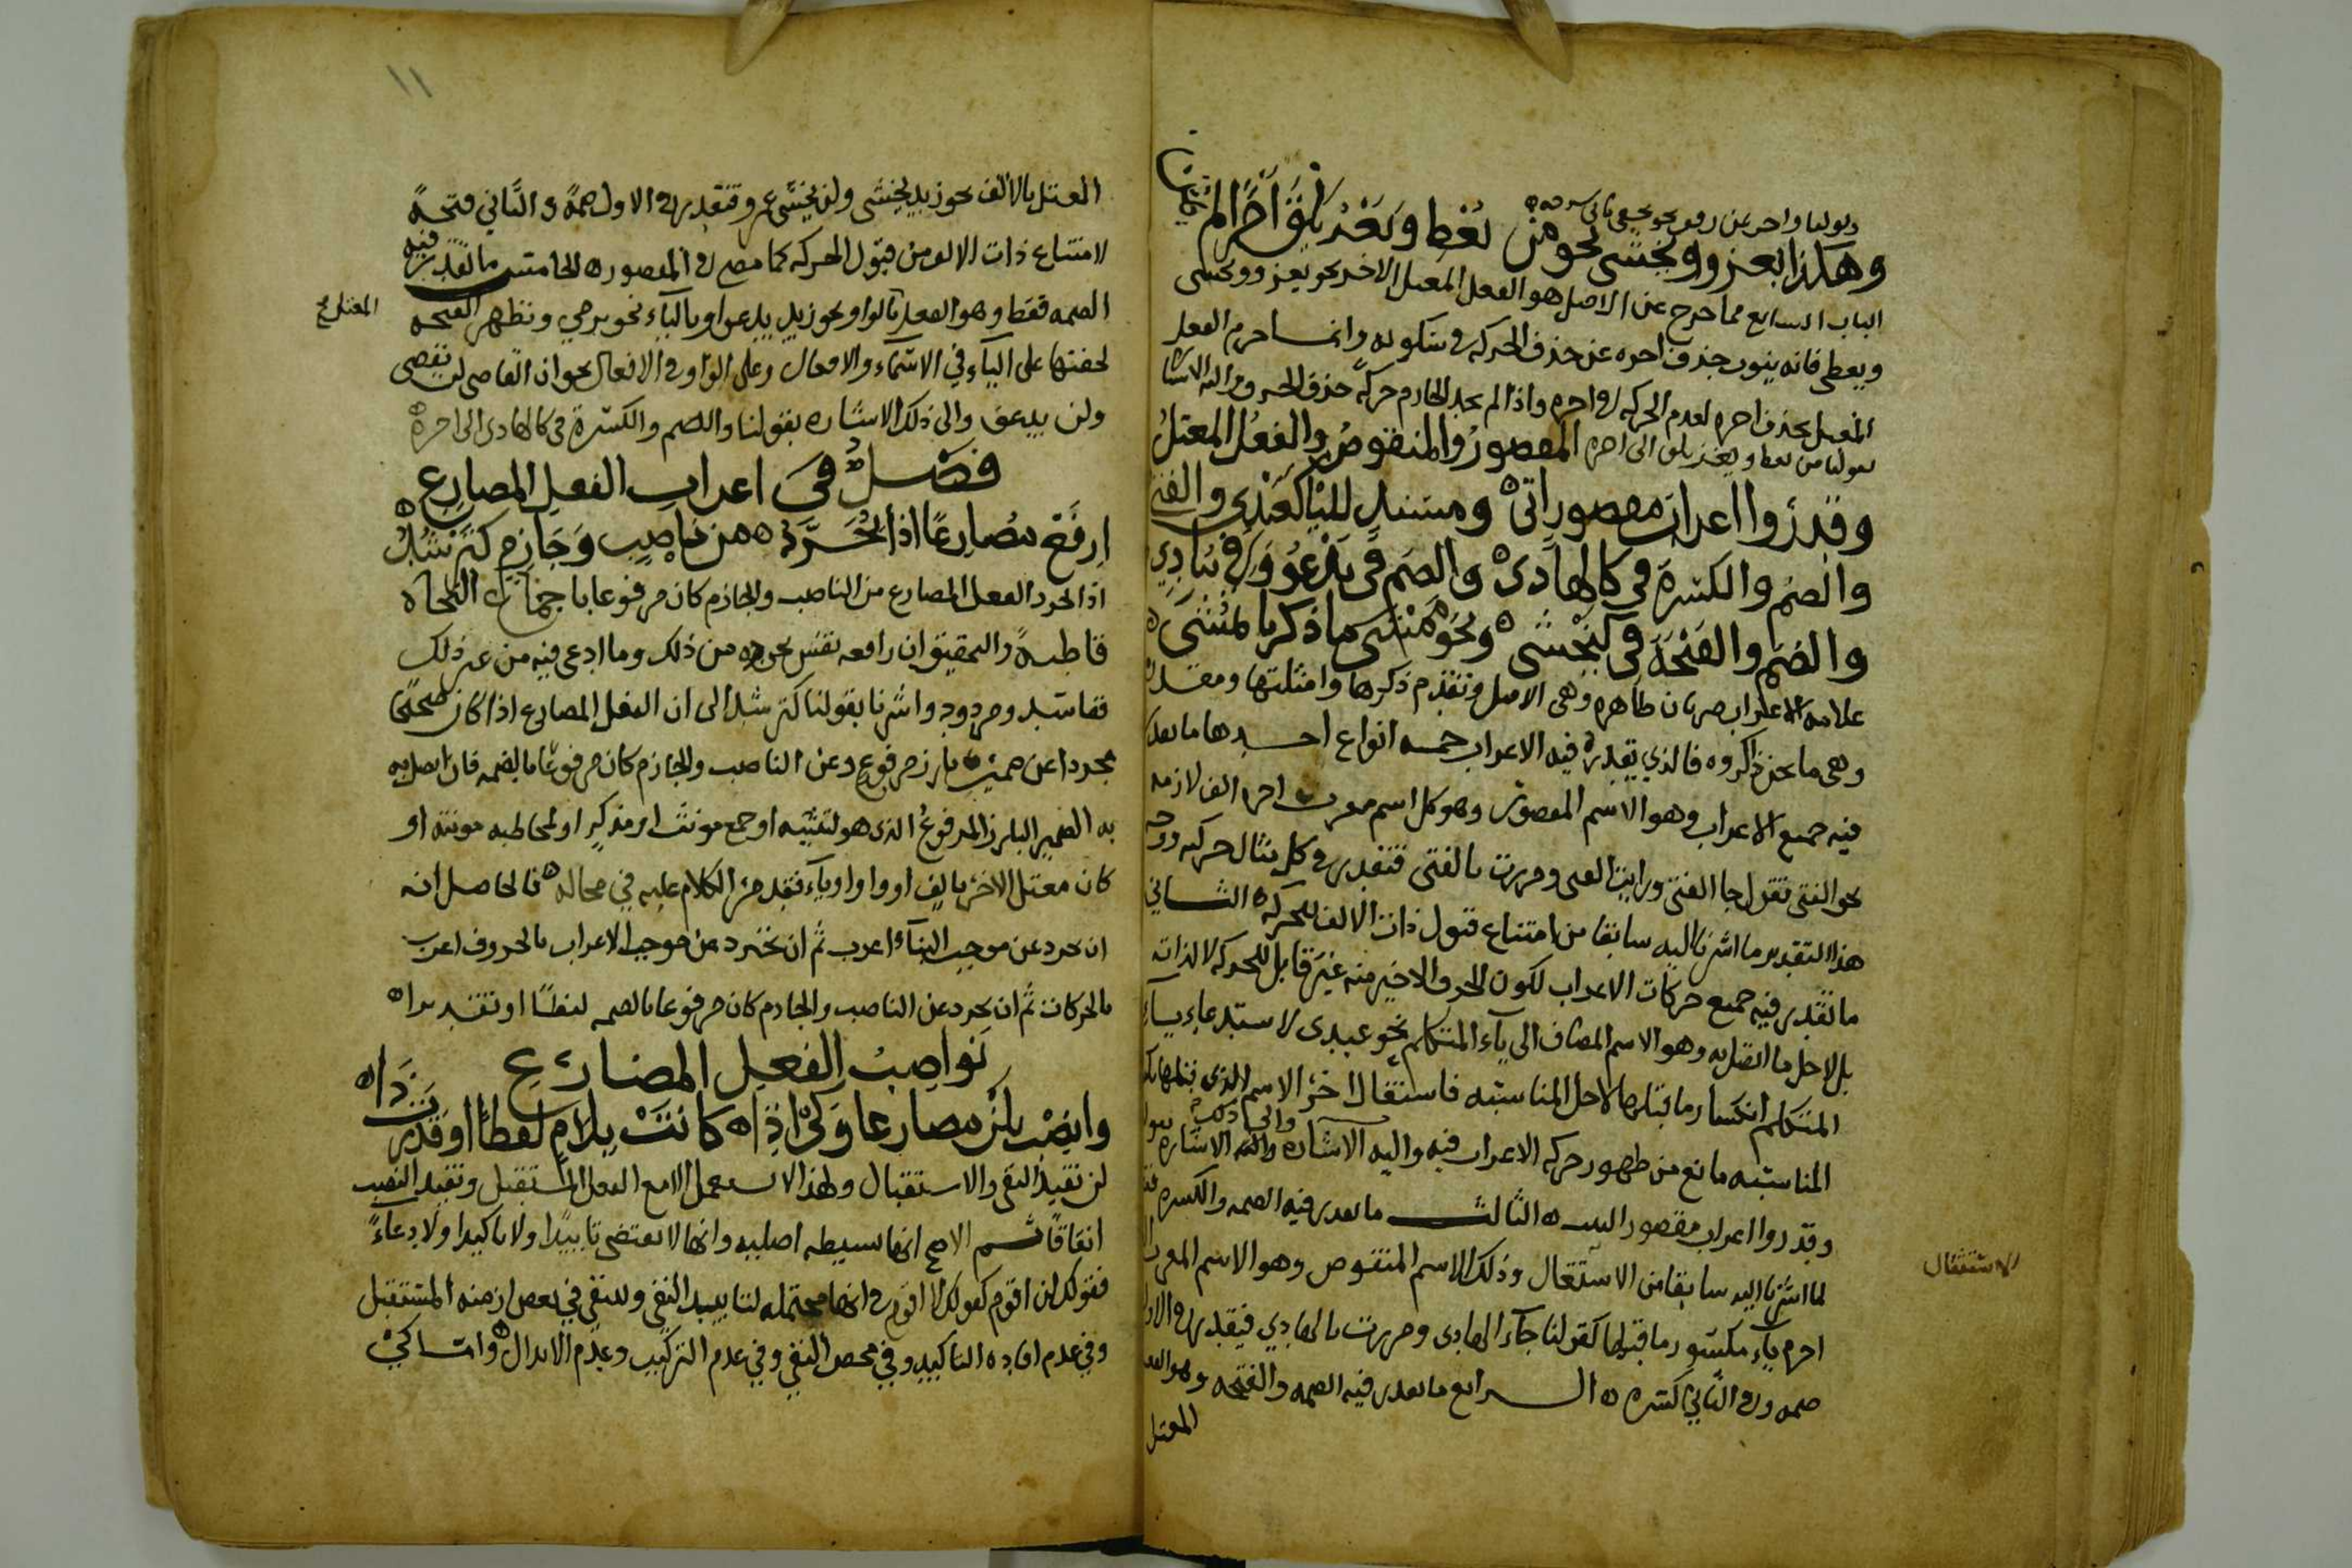 وهكذا يعزو ويخشى نحو من يعط
الباب السابع مما خرج عن الاصل هو الفعل المعتل الاخر نحو يغزو ويخشى
ويعطى فانه ينوب حذف اخره عن حذف الحركة في سكونه وانما جزم الفعل
المعتل بحذف اخره لعدم الحركة في اخره واذا لم يجد الجازم حركة حذف الحرف واليه الاشارة
المقصور والمنقوص والفعل المعتل
وقدروا اعراب مقصور اتى ومسند لليا كعبدي والفتى
والضم والكسرة في كالهادى والضم في يدعو وفي ينادي
والضم والفتحة في كيخشى ونحو منشى ما ذكرنا
علامة الاعراب ضربان ظاهرة وهى الاصل وتقدم ذكرها وامثلتها ومقدرة
وهى ما نحن ذاكروه فالذي يقدر فيه الاعراب خمسة انواع احدها ما يقدر
فيه جميع الاعراب وهو الاسم المقصور وهو كل اسم معرب اخره الف لازمة
نحو الفتى تقول جا الفتى ورايت الفتى ومررت بالفتى فتقدر في كل مثال حركه ووجه
هذا التقدير ما اشرنا اليه سابقا من امتناع قبول ذات الالف للحركة الثاني
ما تقدر فيه جميع حركات الاعراب لكون الحرف الاخير منه غير قابل للحركة لا لذاته
بل لاجل ما اتصل به وهو الاسم المضاف الى ياء المتكلم نحو عبدى لاستدعاء ياء
المتكلم انكسار ما قبلها لاجل المناسبة فاشتغال اخر الاسم الذي قبلها بكسرة
المناسبة مانع من ظهور حركة الاعراب فيه واليه الاشارة
وقدروا اعراب مقصور البيت الثالث ما تقدر فيه الضمة والكسرة فقط
لما اشرنا اليه سابقا من الاستثقال وذلك الاسم المنقوص وهو الاسم المعرب
الاستثقال
اخره ياء مكسور ما قبلها كقولنا جاء الهادى ومررت بالهادي فيقدر في الاول
ضمة وفي الثاني كسرة الرابع ما تقدر فيه الضمة والفتحة وهو الفعل
المعتل
١١
المعتل بالالف نحو زيد يخشى ولن يخشى عمرو فتقدر في الاول ضمة وفي الثاني فتحة
لامتناع ذات الالف من قبول الحركة كما مضى في المقصور الخامس ما تقدر فيه
الضمة فقط وهو الفعل بالواو نحو زيد يدعو او بالياء نحو يرمي وتظهر الفتحة
المعتل صح
لخفتها على الياء في الاسماء والافعال وعلى الواو في الافعال نحو ان القاضى لن يقضى
ولن يدعو والى ذلك الاشارة بقولنا والضم والكسرة في كالهادى الى اخره
فصل في اعراب الفعل المضارع
ارفع مضارعا اذا تجرد من ناصب وجازم كترشد
اذا تجرد الفعل المضارع من الناصب والجازم كان مرفوعا باجماع النحاة
قاطبة والتحقيق ان رافعه نفس تجرده من ذلك وما ادعى فيه من غير ذلك
ففاسد ومردود واشرنا بقولنا كترشد الى ان الفعل المضارع اذا كان صحيحا
مجردا عن ضمير بارز مرفوع وعن الناصب والجازم كان مرفوعا بالضمة فان اتصل به
به الضمير البارز المرفوع الذى هو لتثنية او جمع مونث او مذكر او لمخاطبة مونثة او
كان معتل الاخر بالف او واو او ياء فقد مر الكلام عليه في محاله فالحاصل انه
ان تجرد عن موجب البناء اعرب ثم ان تجرد عن موجب الاعراب بالحروف اعرب
بالحركات ثم ان تجرد عن الناصب والجازم كان مرفوعا بالضمة لفظا او تقديرا
نواصب الفعل المضارع
وانصب بلن مضارعا وكى اذا كانت بلام لفظا او قدرت
لن تفيد النفى والاستقبال ولهذا لا تستعمل الا مع الفعل المستقبل وتفيد النصب
اتفاقا ثم الاصح انها بسيطة اصلية وانها لا تقتضى تابيدا ولا تاكيدا ولا دعاء
فقولك لن اقوم كقولك لا اقوم في انها محتملة لتابيد النفي ولنفي في بعض ازمنة المستقبل
وفي عدم افادة التاكيد وفي محض النفي وفي عدم التركيب وعدم الابدال واما كي